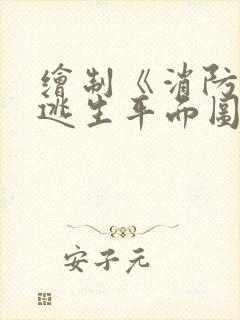 繪制《消防
逃生平面圖
安子元